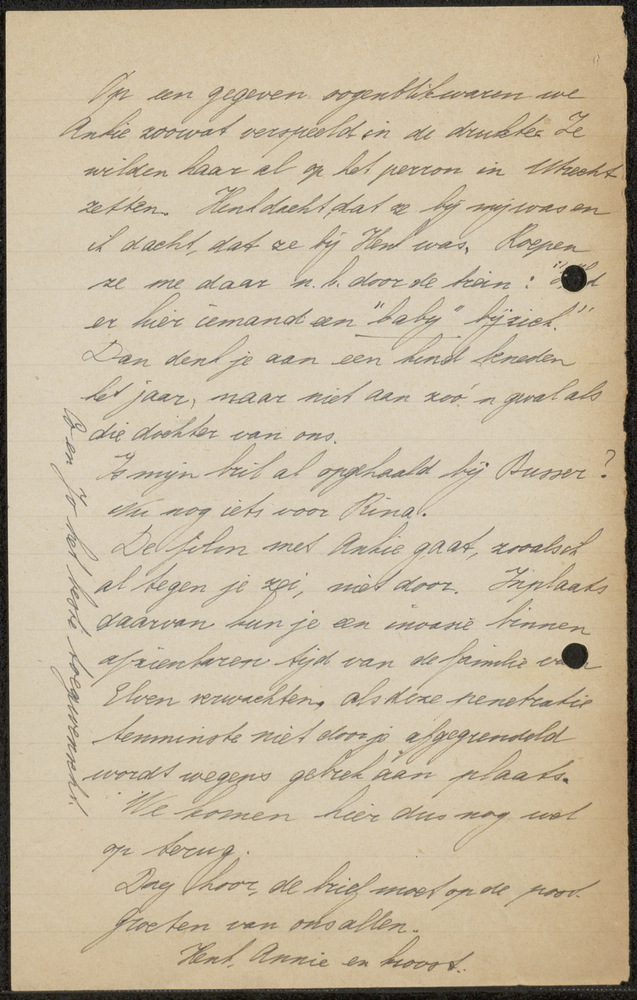 Op een gegeven oogenblik waren we
Antie zoowat verspeeld in de drukte. Ze
wilden haar al op het perron in Utrecht
zetten. Henk dacht, dat ze bij mij was en
ik dacht, dat ze bij Henk was. Roepen
ze me daar n.b. door de trein: "
er hier iemand een "baby" bij zich."
Dan denk je aan een kind beneden
het jaar, maar niet aan zoo'n gval als
die dochter van ons.
Is mijn bril al opgehaald bij Busser?
Nu nog iets voor Rina.
De film met Antie gaat, zooals ik
al tegen je zei, niet door. Inplaats
daarvan kun je een invasie binnen
afzienbaren tijd van de familie van
Elven verwachten, als deze penetratie
tenminste niet door je afgegrendeld
wordt wegens gebrek aan plaats.
We komen hier dus nog wel
op terug.
Dag hoor, de brief moet op de post.
Groeten van ons allen.
Henk, Annie en kroost.
B en Jo het beste toegewenscht!